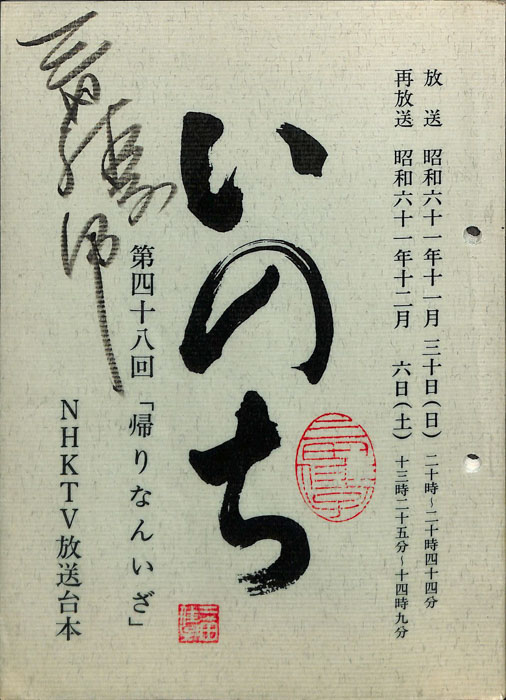 放送 昭和六十一年十一月三十日(日) 二十時~二十時四十四分
再放送 昭和六十一年十二月 六日(土) 十三時二十五分~十四時九分
いのち
第四十八回「帰りなんいざ」
NHKTV放送台本